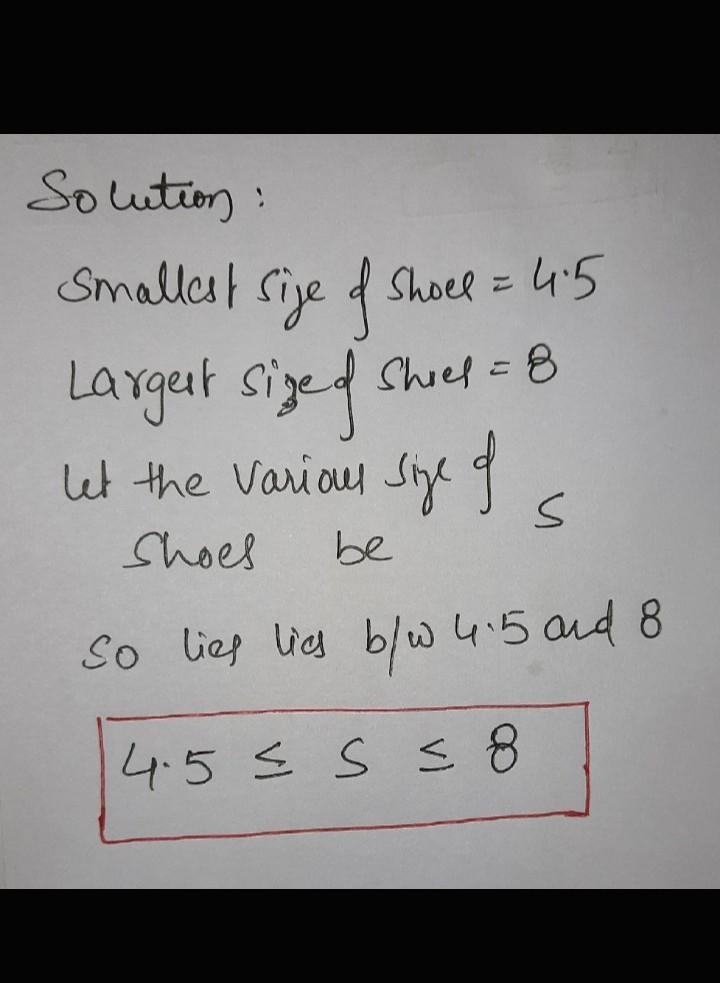 Solution:
Smallest size of shoes = 4.5
Largest size of shoes = 8
let the various size of
shoes be S
So lies lies b/w 4.5 and 8
4.5 ≤ S ≤ 8